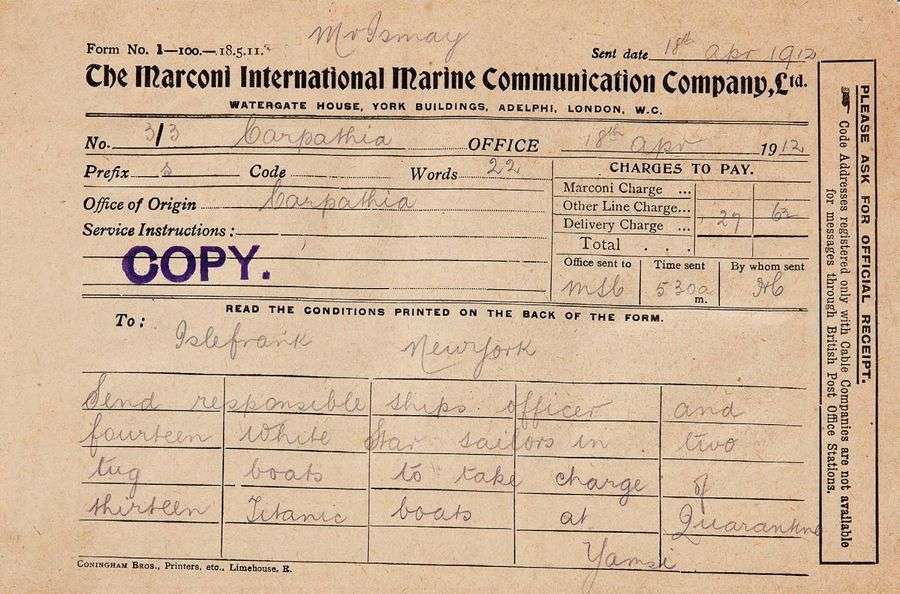 Mr Ismay
Form No. 1—100.—18.5.11.
Sent date 18th apr 1912
The Marconi International Marine Communication Company, Ltd.
WATERGATE HOUSE, YORK BUILDINGS, ADELPHI, LONDON, W.C.
No. 3/3 Carpathia OFFICE 18th apr 1912
Prefix s Code Words 22
CHARGES TO PAY.
Marconi Charge ...
Office of Origin Carpathia
Other Line Charge...
Delivery Charge ...
Service Instructions:
Total . . .
COPY.
Office sent to Time sent By whom sent
5 30a m.
READ THE CONDITIONS PRINTED ON THE BACK OF THE FORM.
To: Islefrank New York
Send responsible ships officer and
fourteen White Star sailors in two
tug boats to take charge of
thirteen Titanic boats at Quarantine
Yamsi
CONINGHAM BROS., Printers, etc., Limehouse, E.
PLEASE ASK FOR OFFICIAL RECEIPT.
Code Addresses registered only with Cable Companies are not available
for messages through British Post Office Stations.